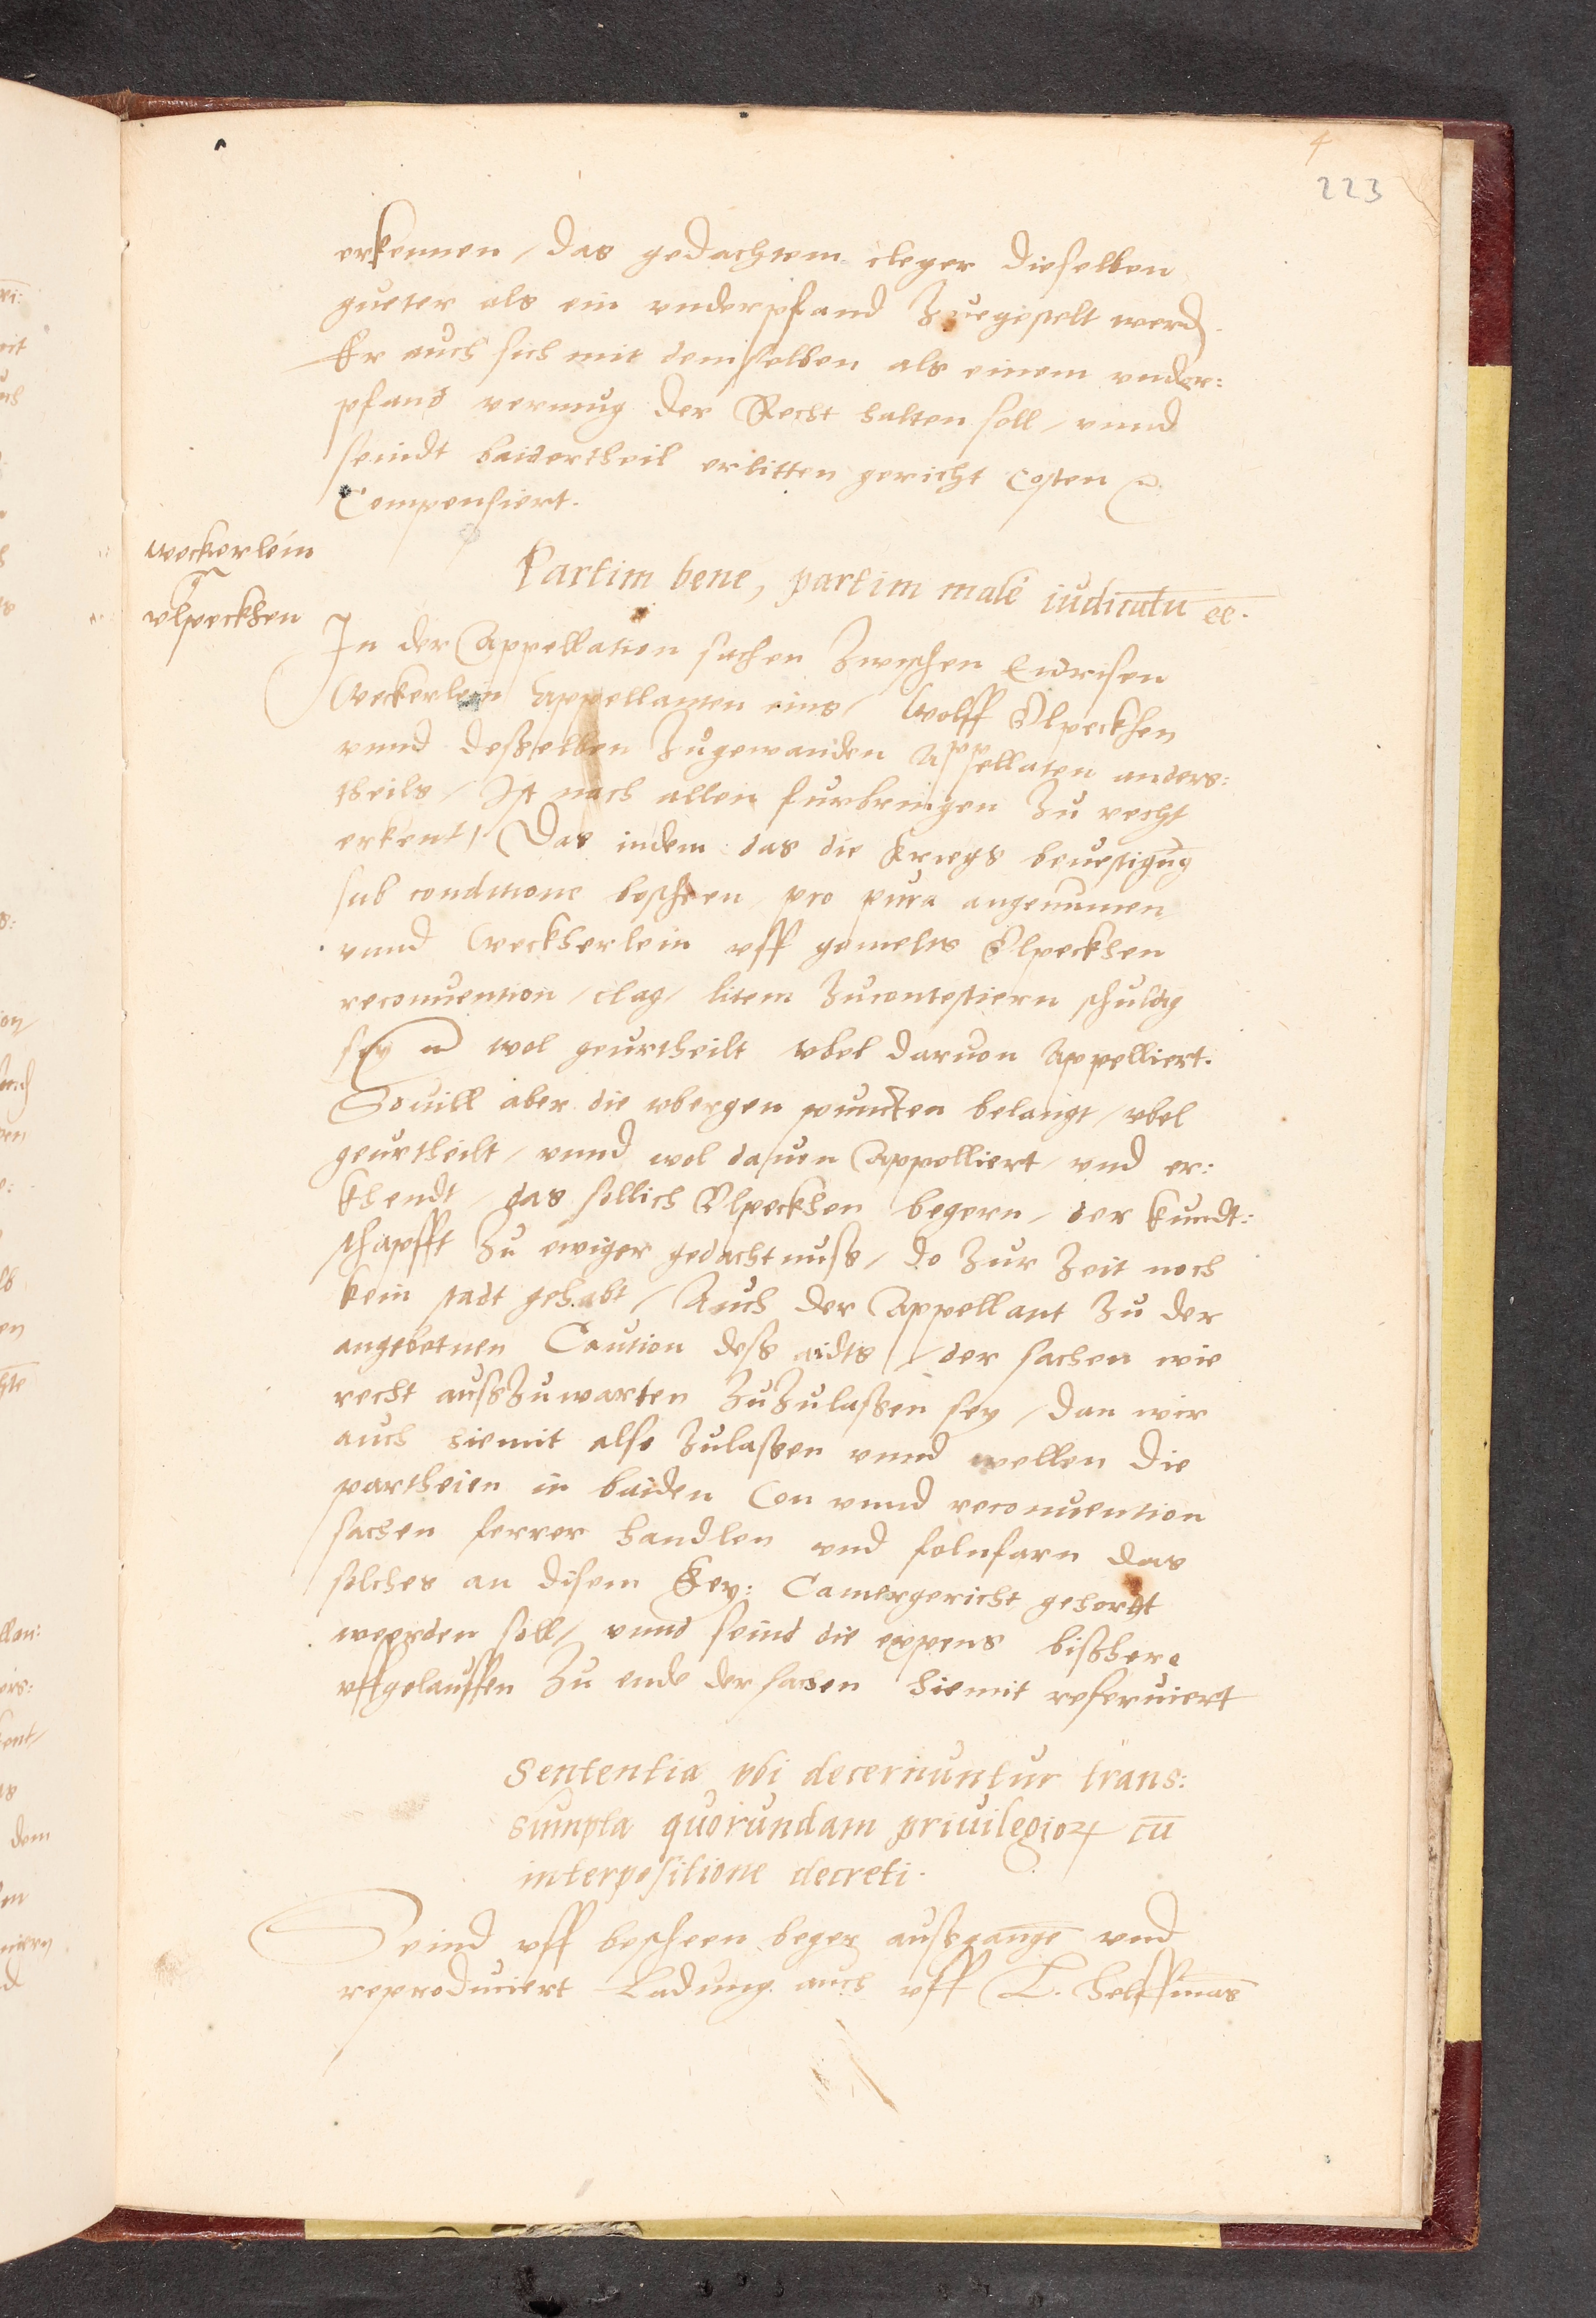 4
223
erkennen / das gedachtem cleger dieselben
gueter als ein underpfand Zuegestelt werd
Er auch sich mit demselben als einem under:
pfand vermug der Recht halten soll / unnd
seindt baidertheil erlitten gericht Costen
Compensiert.
weckerlein
vlpeckhen
Partim bene, partim male iudicatū ēē.
In der Appellation sachen Zwischen
Weckerlein Appellanten eins / Wolff Vlpeckhen
unnd desselben Zugewanden Appellaten anders:
theils / Ist nach allen furbringen Zu recht
erkent / Das indem das die kriegs bevestigūg
sub conditione bescheen / pro pura angenumen
unnd Weckherlein uff gemelts Vlpeckhen
reconvention / clag / litem Zucontestiern schuldig
sey wol geurtheilt vbel darvon Appelliert.
Sovill aber die vbergen puncten belangt / vbel
geurtheilt / unnd wol davon Appelliert / und er:
khendt / das sollich Vlpeckhen begern / der kundt:
schafft Zu ewiger gedachtnuss / do Zur Zeit noch
kein stadt gehabt / Auch der Appellant Zu der
angebotnen Caution dess aidts / der sachen wie
recht ausszuwarten Zuzulassen sey / dan wir
auch hiemit also Zulassen unnd wellen die
partheien in baiden Con unnd reconvention
sachen ferrer handlen und folnfarn das
solches an disem Key: Camergericht gehortt
weerden soll / unnd seind die expens bisshere
uffgelauffen Zu ende der sachen hiemit reserviert
Sententia vbi decernuntur trans:
sumpta quorundam privilegioꝝ cū
interpositione decreti.
Seind uff bescheen beger aussgangē und
reproduciert Ladung auch uff L. Helffmās